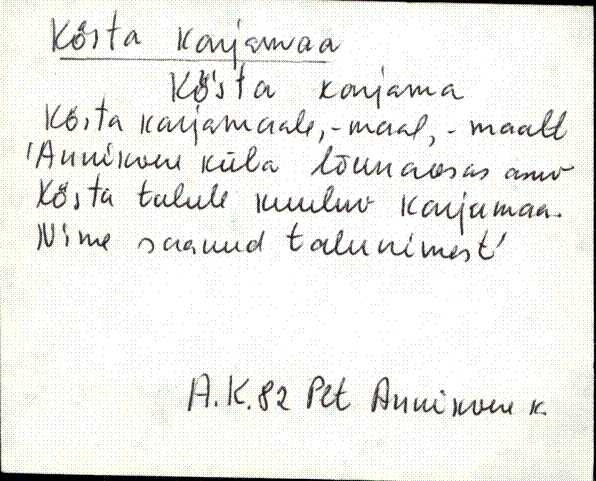 Kõsta karjamaa
Kõ̭sta karjama
Kõsta karjamaale, -maal, -maalt
'Annikvere küla lõunaosas asuv
Kõsta talule kuuluv karjamaa.
Nime saanud talunimest'
A.K. 82 Pet Annikvere k.